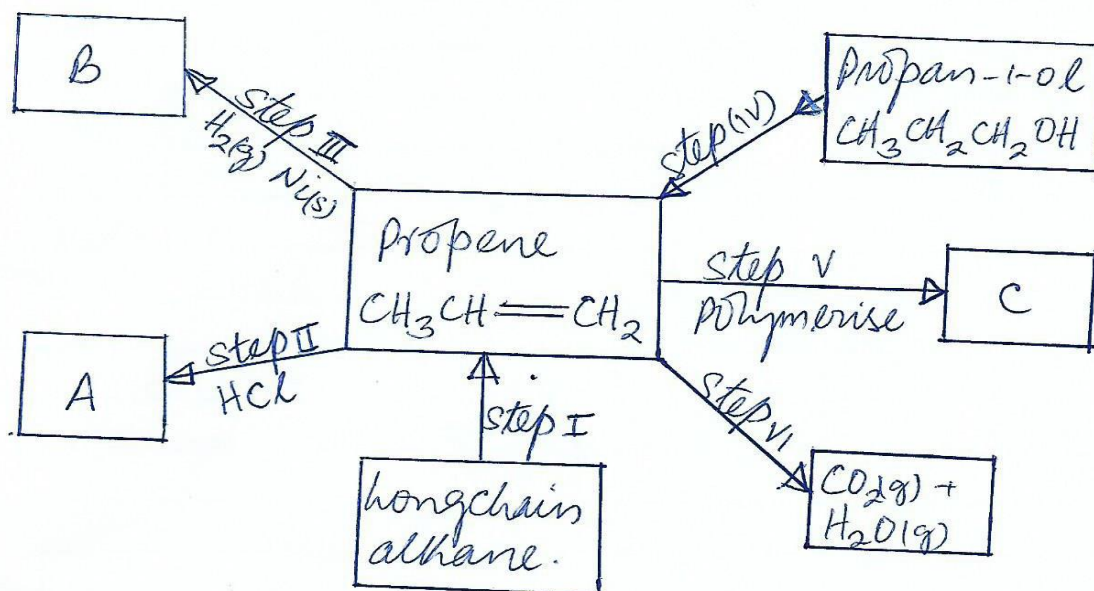 B
Step III
H₂(g) Ni(s)
Propan-1-ol
CH₃CH₂CH₂OH
Step (iv)
Propene
CH₃CH=CH₂
Step V
Polymerise
C
Step II
HCl
A
Step I
Longchain
alkane.
Step VI
CO₂(g) +
H₂O(g)